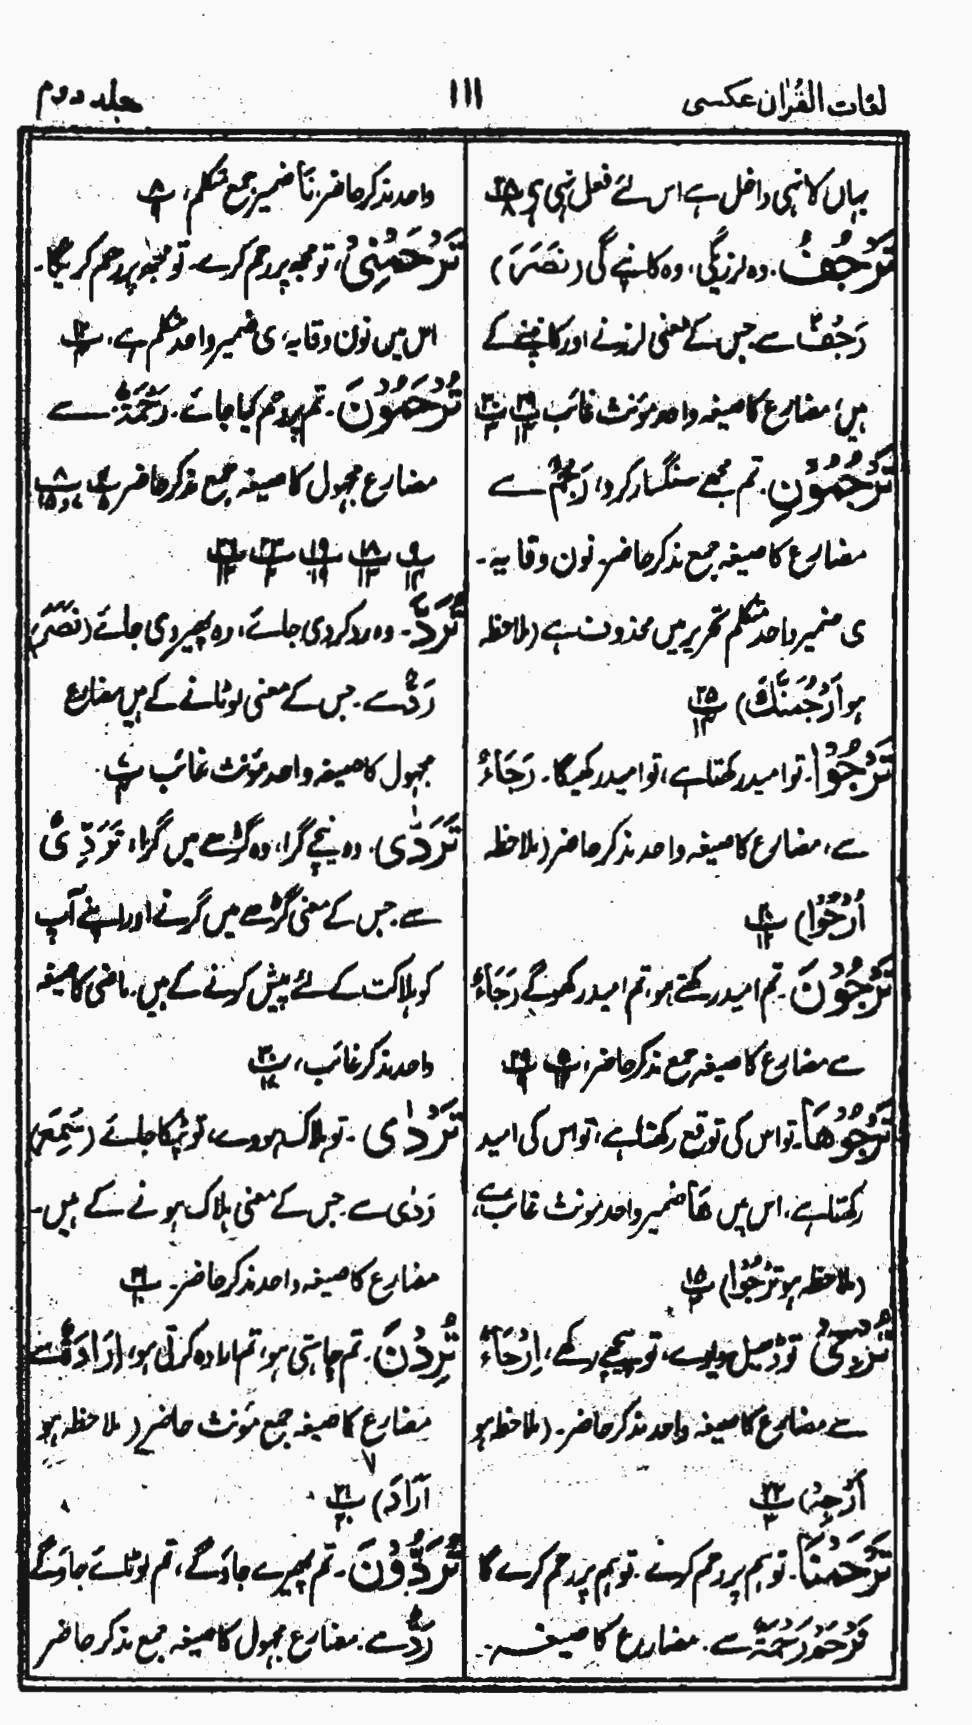 لغات القرآن عکسی
۱۱۱
جلد دوم
یہاں کا نہی داخل ہے اس لئے فعل نہی ہے
تَرْجُفُ. وہ لرزیگی، وہ کانپے گی (نَصَرَ)
رَجْفٌ سے جس کے معنی لرزنے اور کانپنے کے
ہیں؛ مضارع کا صیغہ واحد مؤنث غائب
تَرْجُمُوْنِ. تم مجھے سنگسار کردو، رَجْمٌ سے
مضارع کا صیغہ جمع مذکر حاضر. نون وقایہ -
ی ضمیر واحد متکلم تحریر میں محذوف ہے (ملاحظہ
ہو اَرْجُمَنَّكَ) پ ۲۵ / ۱۴
تَرْجُوْا. تو امید رکھتا ہے، تو امید رکھیگا. رَجَاءٌ
سے، مضارع کا صیغہ واحد مذکر حاضر (ملاحظہ
اُرْجُوْا) پ ۲۰ / ۱۲
تَرْجُوْنَ. تم امید رکھتے ہو، تم امید رکھو گے رَجَاءٌ
سے مضارع کا صیغہ جمع مذکر حاضر،
تَرْجُوْهَا. تو اس کی توقع رکھتا ہے، تو اس کی امید
رکھتا ہے، اس میں هَا ضمیر واحد مونث غائب ہے،
(ملاحظہ ہو تَرْجُوْا) پ ۱۵ / ۳
تُرْجِیْ تو ڈھیل دیوے، تو پیچھے رکھے، اِرْجَاءٌ
سے مضارع کا صیغہ واحد مذکر حاضر. (ملاحظہ ہو
اَرْجِهْ) پ ۲۲ / ۳
تَرْحَمْنَا. تو ہم پر رحم کرنے. تو ہم پر رحم کرے گا
تَرْحَمْ رَحْمَةٌ سے. مضارع کا صیغہ
واحد مذکر حاضر، نَا ضمیر جمع متکلم، پ ۸ / ۹
تَرْحَمْنِیْ، تو مجھ پر رحم کرے. تو مجھ پر رحم کریگا.
اس میں نون وقایہ، ی ضمیر واحد متکلم ہے،
تُرْحَمُوْنَ. تم پر رحم کیا جائے. رَحْمَةٌ سے
مضارع مجہول کا صیغہ جمع مذکر حاضر
پ ۹ / ۱۴ پ ۱۸ / ۱۳ پ ۱۹ / ۱۹ پ ۲۳ / ۲
تُرَدَّ. وہ رد کردی جائے، وہ پھیر دی جائے (نَصَرَ)
رَدٌّ سے. جس کے معنی لوٹانے کے ہیں مضارع
مجہول کا صیغہ واحد مؤنث غائب
تَرَدّٰی. وہ نیچے گرا، وہ گڑھے میں گرا، تَرَدِّیٌ
سے جس کے معنی گڑھے میں گرنے اور اپنے آپ
کو ہلاکت کے لئے پیش کرنے کے ہیں. ماضی کا صیغہ
واحد مذکر غائب، پ ۳۰ / ۱۷
تَرْدٰی. تو ہلاک ہووے، تو پٹکا جائے (سَمِعَ)
رَدٰی سے جس کے معنی ہلاک ہونے کے ہیں.
مضارع کا صیغہ واحد مذکر حاضر.
تُرِدْنَ. تم چاہتی ہو، تم ارادہ کرتی ہو، اِرَادَةٌ سے
مضارع کا صیغہ جمع مؤنث حاضر (ملاحظہ ہو
اَرَادَ) پ ۲۱ / ۲۰
تُرَدُّوْنَ. تم پھیرے جاؤ گے، تم لوٹائے جاؤ گے
رَدٌّ سے. مضارع مجہول کا صیغہ جمع مذکر حاضر